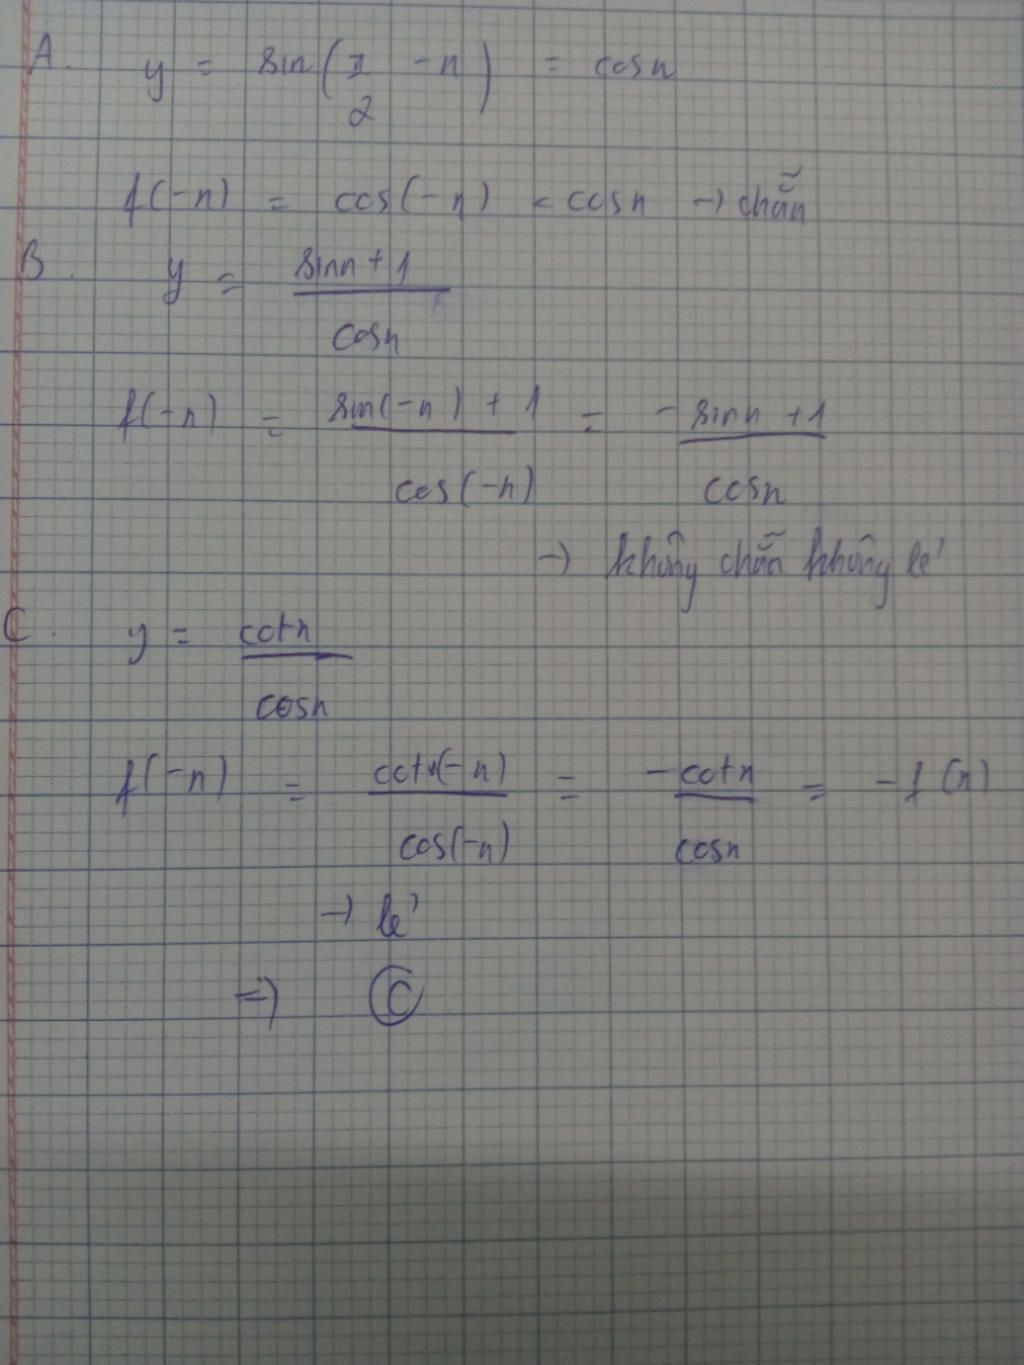 A. y = sin(π/2 - x) = cosx
f(-x) = cos(-x) = cosx → chẵn
B. y = sinx + 1 / cosx
f(-x) = sin(-x) + 1 / cos(-x) = -sinx + 1 / cosx
→ không chẵn không lẻ
C. y = cotx / cosx
f(-x) = cot(-x) / cos(-x) = -cotx / cosx = -f(x)
→ lẻ
⇒ C